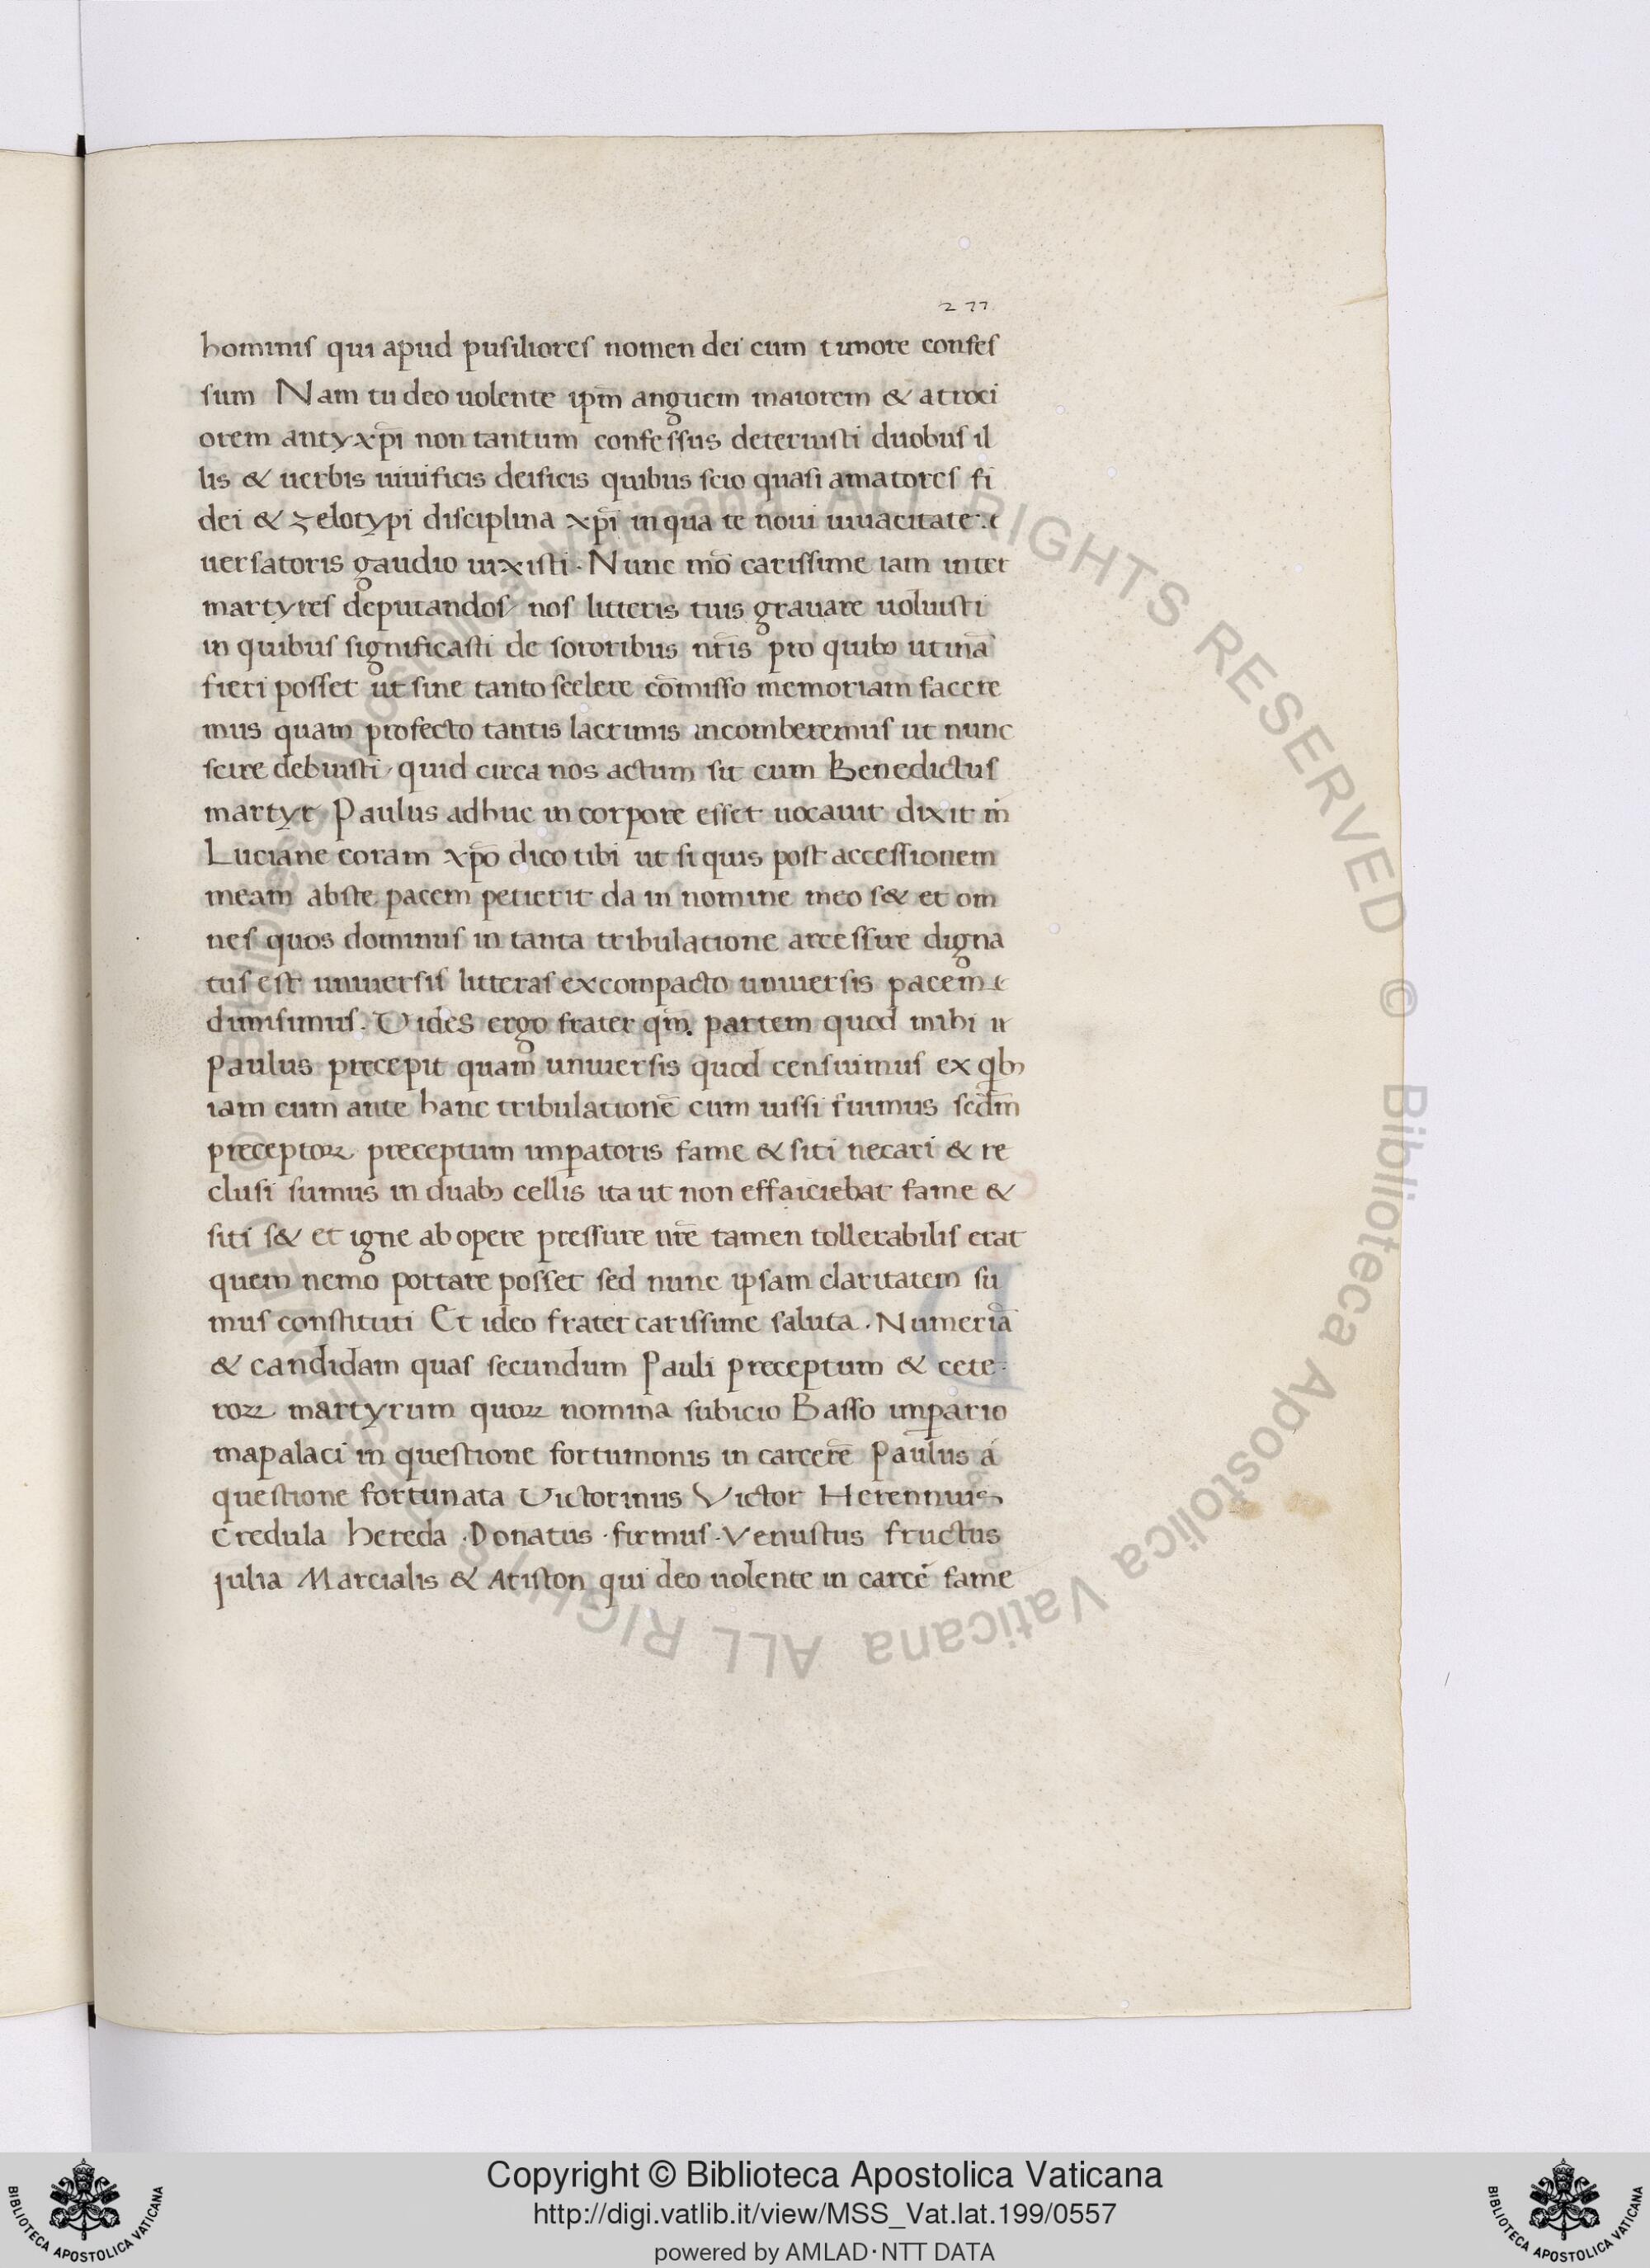 277
hominis qui apud pusiliores nomen dei cum timore confes
sum Nam tu deo uolente ip̄m anguem maiorem & atroci
orem antyxp̄i non tantum confessus deteruisti duobus il
lis & uerbis uiuificis deificis quibus scio quasi amatores fi
dei & zelotypi disciplina xp̄i in qua te noui uiuacitate
uersatoris gaudio uixisti. Nunc mo᷎ carissime iam inter
martyres deputandos nos litteris tuis grauare uoluisti
in quibus significasti de sororibus nr̄is pro quibꝫ utinā
fieri posset ut sine tanto scelere cōmisso memoriam facere
mus quam profecto tantis lacrimis incomberemus ut nunc
scire debuisti quid circa nos actum sit cum Benedictus
martyr Paulus adhuc in corpore esset uocauit dixit m̄
Luciane coram xp̄o dico tibi ut si quis post accessionem
meam abste pacem petierit da in nomine meo s& et om
nes quos dominus in tanta tribulatione arcessire digna
tus est uniuersis litteras excompacto uniuersis pacem
dimisimus. Vides ergo frater qm̄. partem quod mihi
Paulus precepit quam uniuersis quod censuimus ex qbꝫ
iam cum ante hanc tribulationē cum iussi fuimus secdm̄
preceptoꝝ preceptum impatoris fame & siti necari & re
clusi sumus in duabꝫ cellis ita ut non effaiciebat fame &
siti s& et igne ab opere pressure nr̄e tamen tollerabilis erat
quem nemo portare posset sed nunc ipsam claritatem su
mus constituti Et ideo frater carissime saluta. Numeriā
& candidam quas secundum Pauli preceptum & cete
roꝝ martyrum quoꝝ nomina subicio Basso imꝑario
mapalaci in questione fortumonis in carcerē Paulus á
questione fortunata Victorinus Victor Herennius
Credula hereda. Donatus. firmus. Venustus fructus
julia Marcialis & Ariston qui deo uolente in carcē fame
Biblioteca Apostolica Vaticana ALL RIGHTS RESERVED ©
Biblioteca Apostolica Vaticana ALL RIGHTS
BIBLIOTECA APOSTOLICA VATICANA
Copyright © Biblioteca Apostolica Vaticana
http://digi.vatlib.it/view/MSS_Vat.lat.199/0557
powered by AMLAD·NTT DATA
BIBLIOTECA APOSTOLICA VATICANA